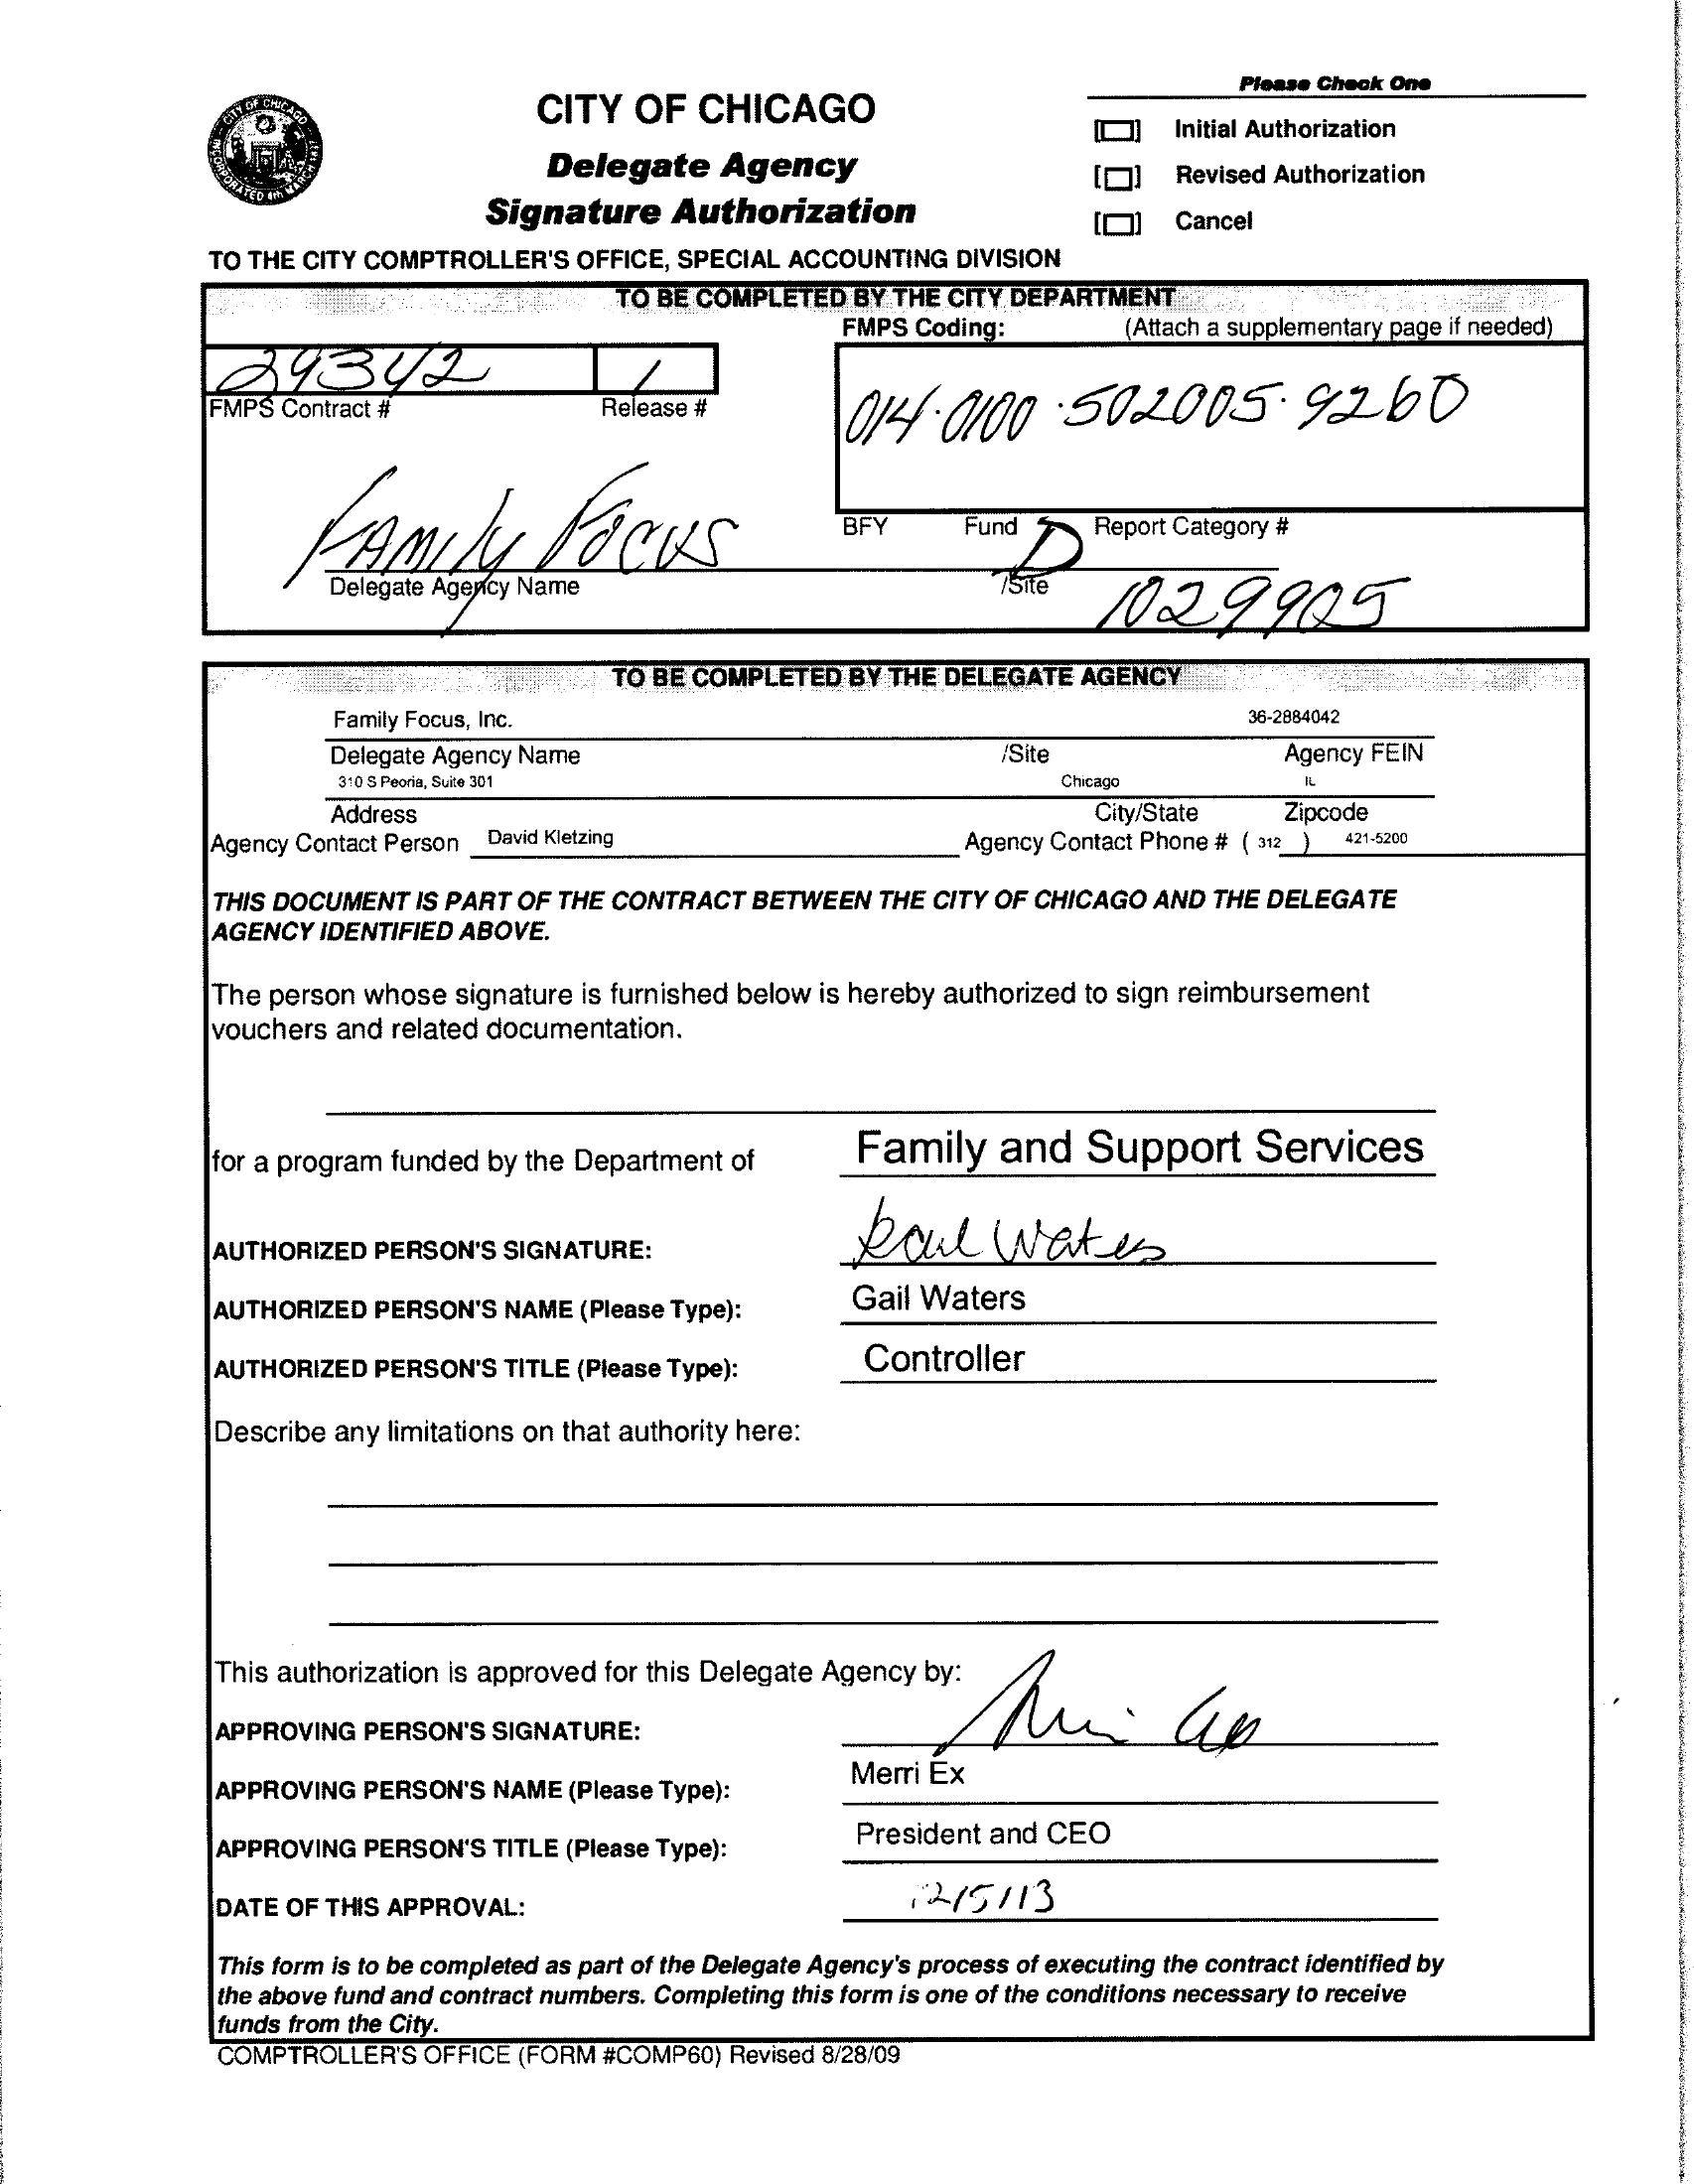 Please Check One
CITY OF CHICAGO
Initial Authorization
Delegate Agency
Revised Authorization
Signature Authorization
Cancel
TO THE CITY COMPTROLLER'S OFFICE, SPECIAL ACCOUNTING DIVISION
TO BE COMPLETED BY THE CITY DEPARTMENT
FMPS Coding: (Attach a supplementary page if needed)
29342 1
FMPS Contract # Release #
014·0100·502005·9260
BFY Fund Report Category #
FAMily Focus D
Delegate Agency Name /Site
1029905
TO BE COMPLETED BY THE DELEGATE AGENCY
Family Focus, Inc. 36-2884042
Delegate Agency Name /Site Agency FEIN
310 S Peoria, Suite 301 Chicago IL
Address City/State Zipcode
Agency Contact Person David Kletzing Agency Contact Phone # ( 312 ) 421-5200
THIS DOCUMENT IS PART OF THE CONTRACT BETWEEN THE CITY OF CHICAGO AND THE DELEGATE
AGENCY IDENTIFIED ABOVE.
The person whose signature is furnished below is hereby authorized to sign reimbursement
vouchers and related documentation.
for a program funded by the Department of Family and Support Services
AUTHORIZED PERSON'S SIGNATURE: Waters
AUTHORIZED PERSON'S NAME (Please Type): Gail Waters
AUTHORIZED PERSON'S TITLE (Please Type): Controller
Describe any limitations on that authority here:
This authorization is approved for this Delegate Agency by:
APPROVING PERSON'S SIGNATURE:
APPROVING PERSON'S NAME (Please Type): Merri Ex
APPROVING PERSON'S TITLE (Please Type): President and CEO
DATE OF THIS APPROVAL: 12/5/13
This form is to be completed as part of the Delegate Agency's process of executing the contract identified by
the above fund and contract numbers. Completing this form is one of the conditions necessary to receive
funds from the City.
COMPTROLLER'S OFFICE (FORM #COMP60) Revised 8/28/09